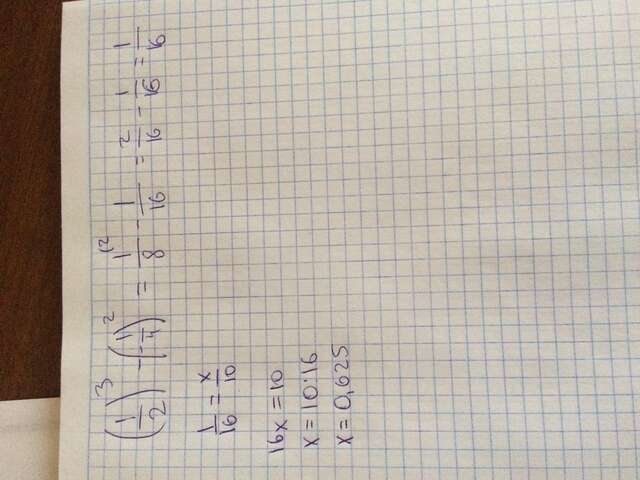 (1/2)^3 - (-1/4)^2 = 1^(2/8 - 1/16 = 2/16 - 1/16 = 1/16
1/16 = x/10
16x = 10
x = 10:16
x = 0,625